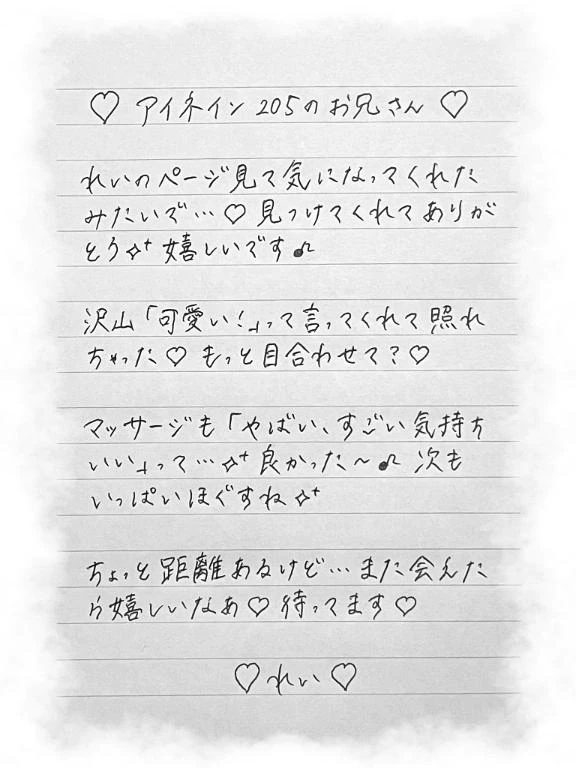 ♡ アイネイン 205のお兄さん ♡
れいのページ見て気になってくれた
みたいで…♡ 見つけてくれてありが
とう✧⁺ 嬉しいです♪
沢山「可愛い!」って言ってくれて照れ
ちゃった♡ もっと目合わせて?♡
マッサージも「やばい、すごい気持ち
いい」って…✧⁺ 良かった〜♪ 次も
いっぱいほぐすね✧⁺
ちょっと距離あるけど…また会えた
ら嬉しいなあ♡ 待ってます♡
♡れい♡